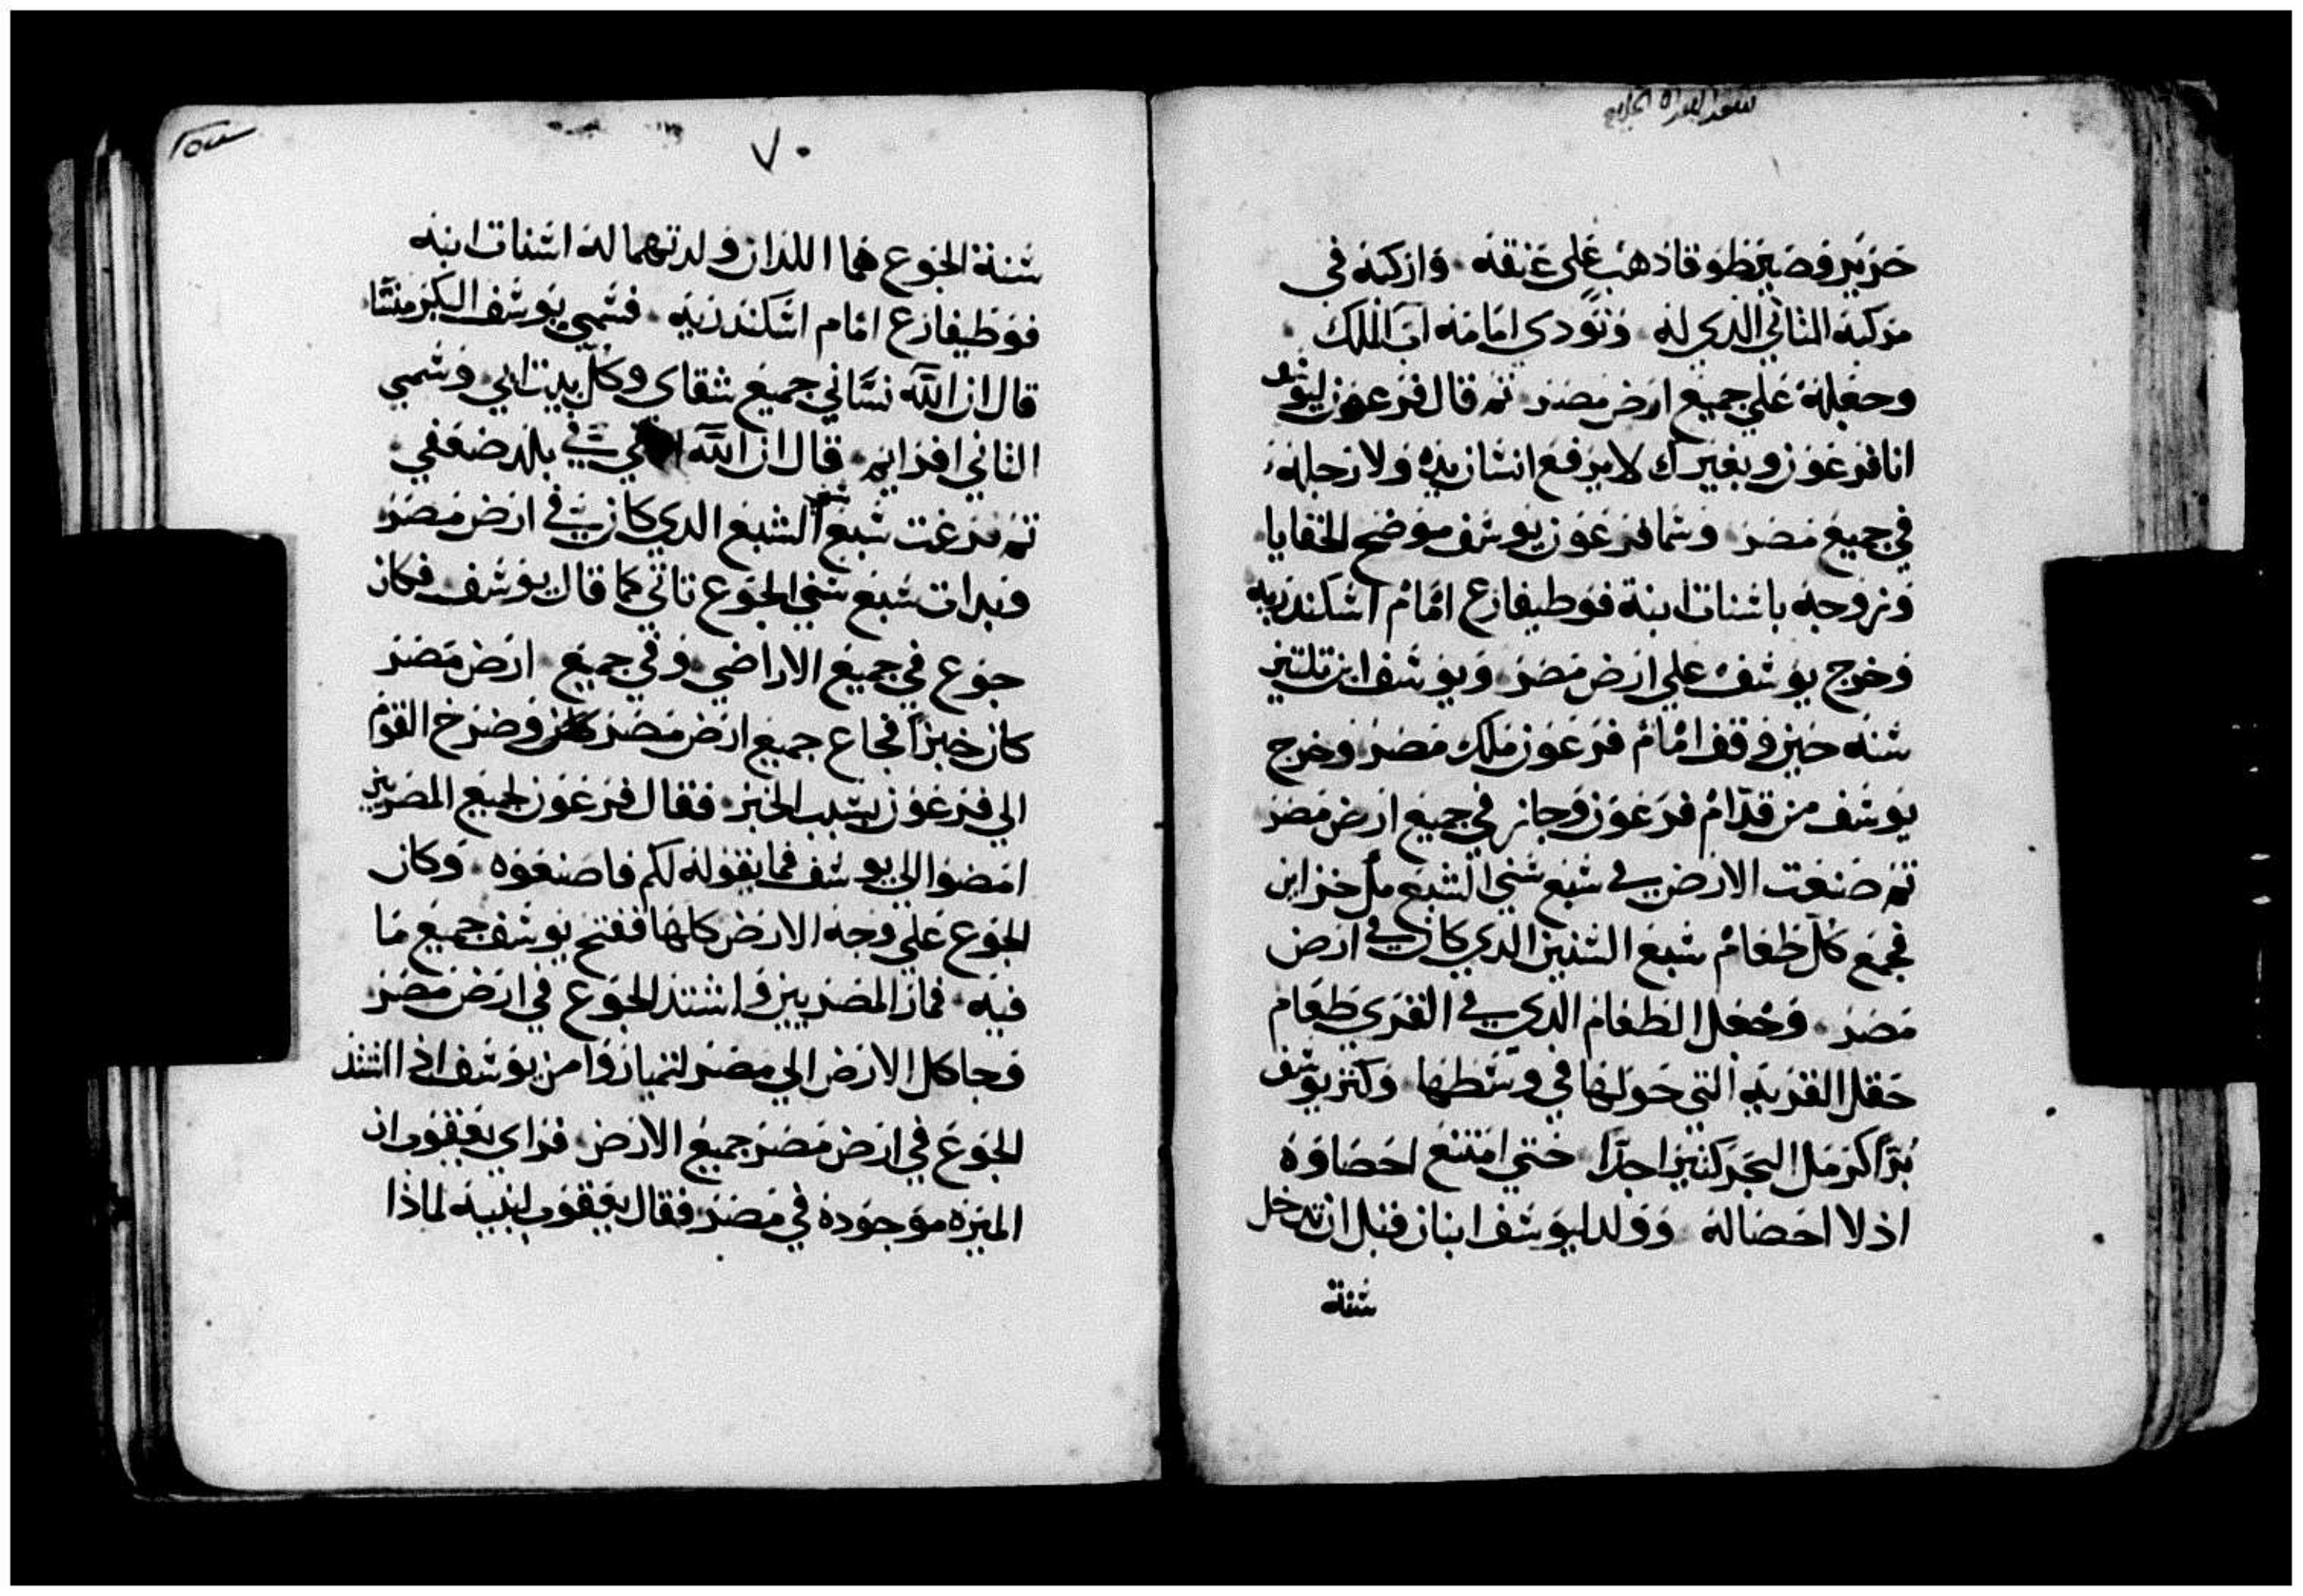 حرير وصير طوقا ذهب على عنقه وأركبه في
مركبه الثاني الدي له ونودي امامه اب الملك
وجعله علي جميع ارض مصر ثم قال فرعون ليوسف
انا فرعون وبغيرك لا يرفع انسان يده ولا رجله
في جميع مصر وسما فرعون يوسف موضح الخفايا
وزوجه باسنات ابنة فوطيفارع امام اسكندريه
وخرج يوسف علي ارض مصر ويوسف ابن تلتين
سنه حين وقف امام فرعون ملك مصر وخرج
يوسف من قدام فرعون وجاز في جميع ارض مصر
تم صنعت الارض في سبع سني الشبع مل خزاين
فجمع كل طعام سبع السنين الدي كان في ارض
مصر وجعل الطعام الدي في القري طعام
حقل القريه التي حولها في وسطها وكنز يوسف
برًا كرمل البحر كتيرا جدًا حتي امتنع احصاوه
اذ لا احصا له وولد ليوسف ابنان قبل ان تدخل
سنة
٧٠
سنة الجوع هما اللدان ولدتهما له اسنات ابنه
فوطيفارع امام اسكندريه فسمي يوسف البكر منسّا
قال ان الله نسّاني جميع شقاي وكل بيت ابي وسمي
الثاني افرايم قال ان الله في بلد ضعفي
تم فرغت سبع سني الشبع الدي كان في ارض مصر
وبدات سبع سني الجوع تاتي كما قال يوسف فكان
جوع في جميع الاراضي وفي جميع ارض مصر
كان خبزًا فجاع جميع ارض مصر وصرخ القوم
الي فرعون بسبب الخبز فقال فرعون لجميع المصريين
امضوا الي يوسف فما يقوله لكم فاصنعوه وكان
الجوع علي وجه الارض كلها ففتح يوسف جميع ما
فيه فمار المصريين واشتد الجوع في ارض مصر
وجا كل الارض الي مصر لتمياروا من يوسف اذ اشتد
الجوع في ارض مصر جميع الارض فراي يعقوب ان
الميره موجوده في مصر فقال يعقوب لبنيه لماذا